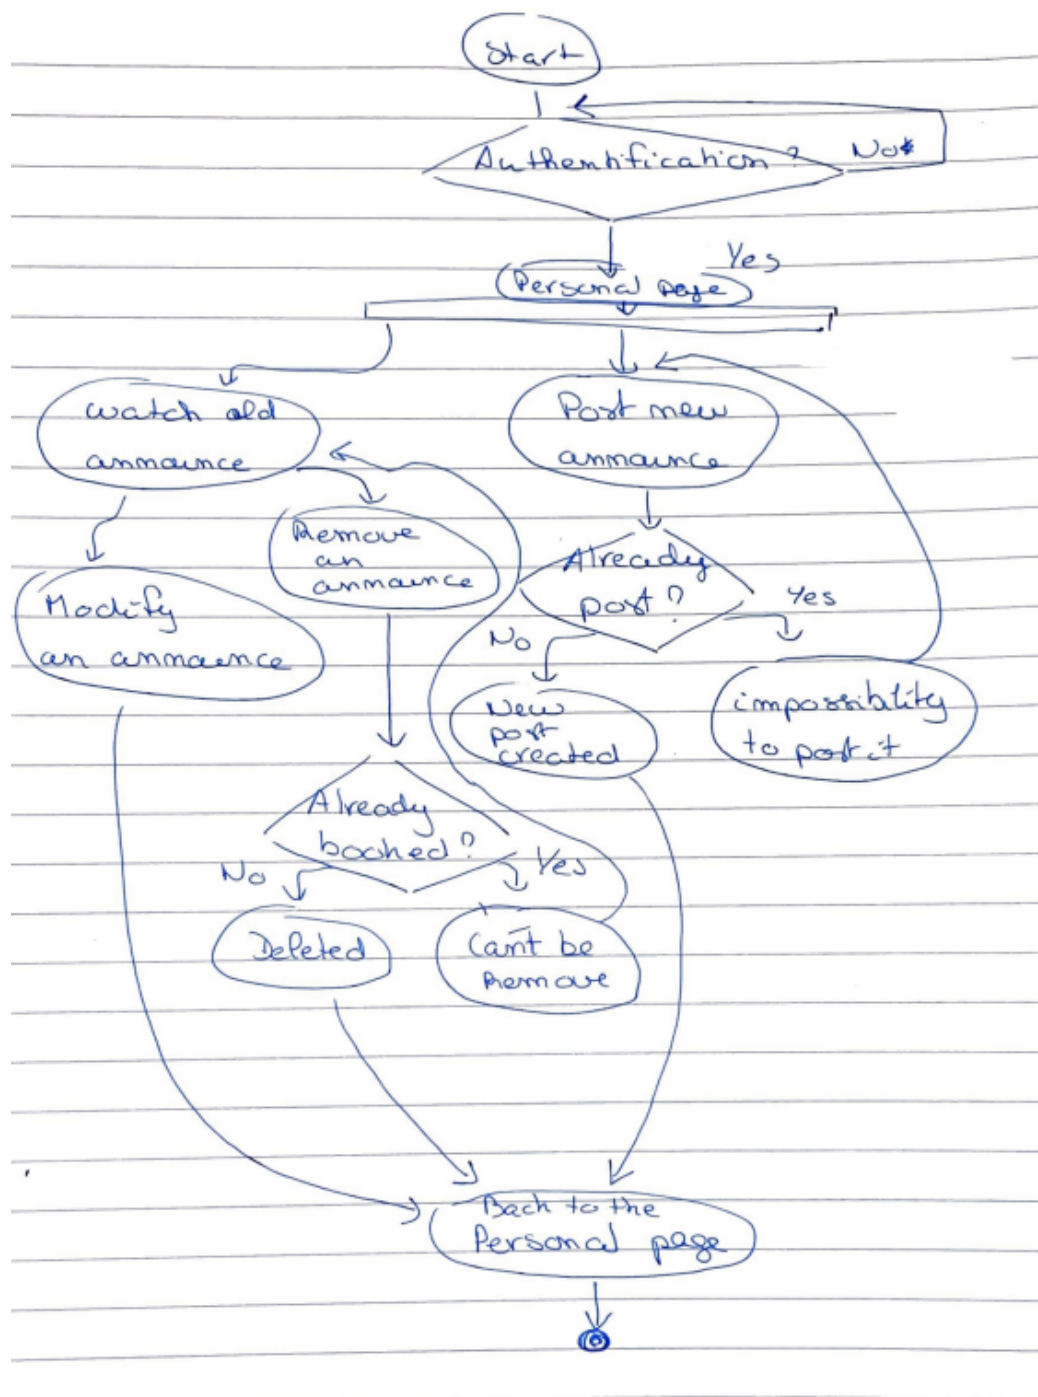 Start
Authentification?
No
Yes
Personal page
watch old
announce
Post new
announce
Remove
an
announce
Already
post?
Yes
No
Modify
an announce
New
post
created
impossibility
to post it
Already
booked?
No
Yes
Deleted
Can't be
Remove
Back to the
Personal page